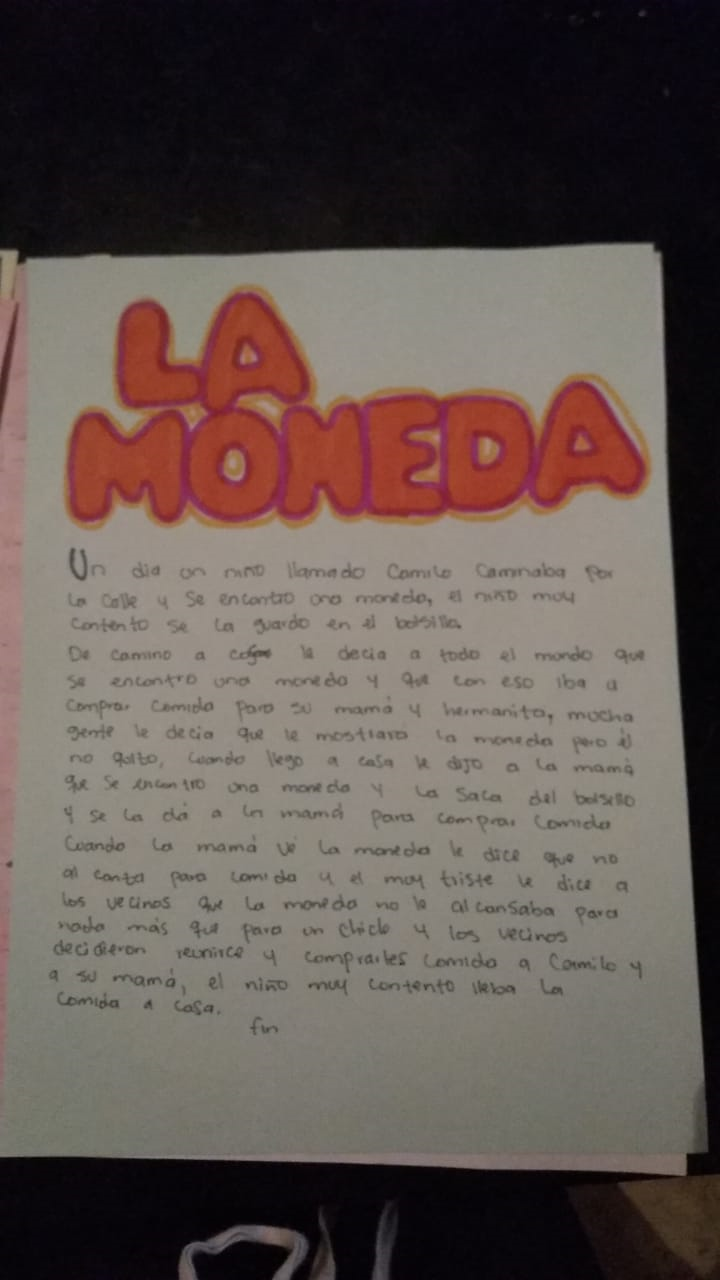 LA
MONEDA
Un dia un niño llamado Camilo Caminaba por
la Calle y Se encontro una moneda, el niño muy
Contento Se La guardo en el bolsillo.
De camino a le decia a todo el mundo que
Se encontro una moneda y que con eso iba a
Comprar Comida para su mamá y hermanito, mucha
gente le decia que le mostrara la moneda pero él
no quito, Cuando llego a casa le dijo a la mamá
que Se encontro una moneda y La Saca del bolsillo
y se la dá a la mamá para comprar Comida
Cuando la mamá vé la moneda le dice que no
al canza para comida y el muy triste le dice a
los vecinos que La moneda no le al cansaba para
nada más que para un chicle y los vecinos
decidieron reunirce y comprarles Comida a Camilo y
a su mamá, el niño muy contento lleba La
Comida a casa.
fin